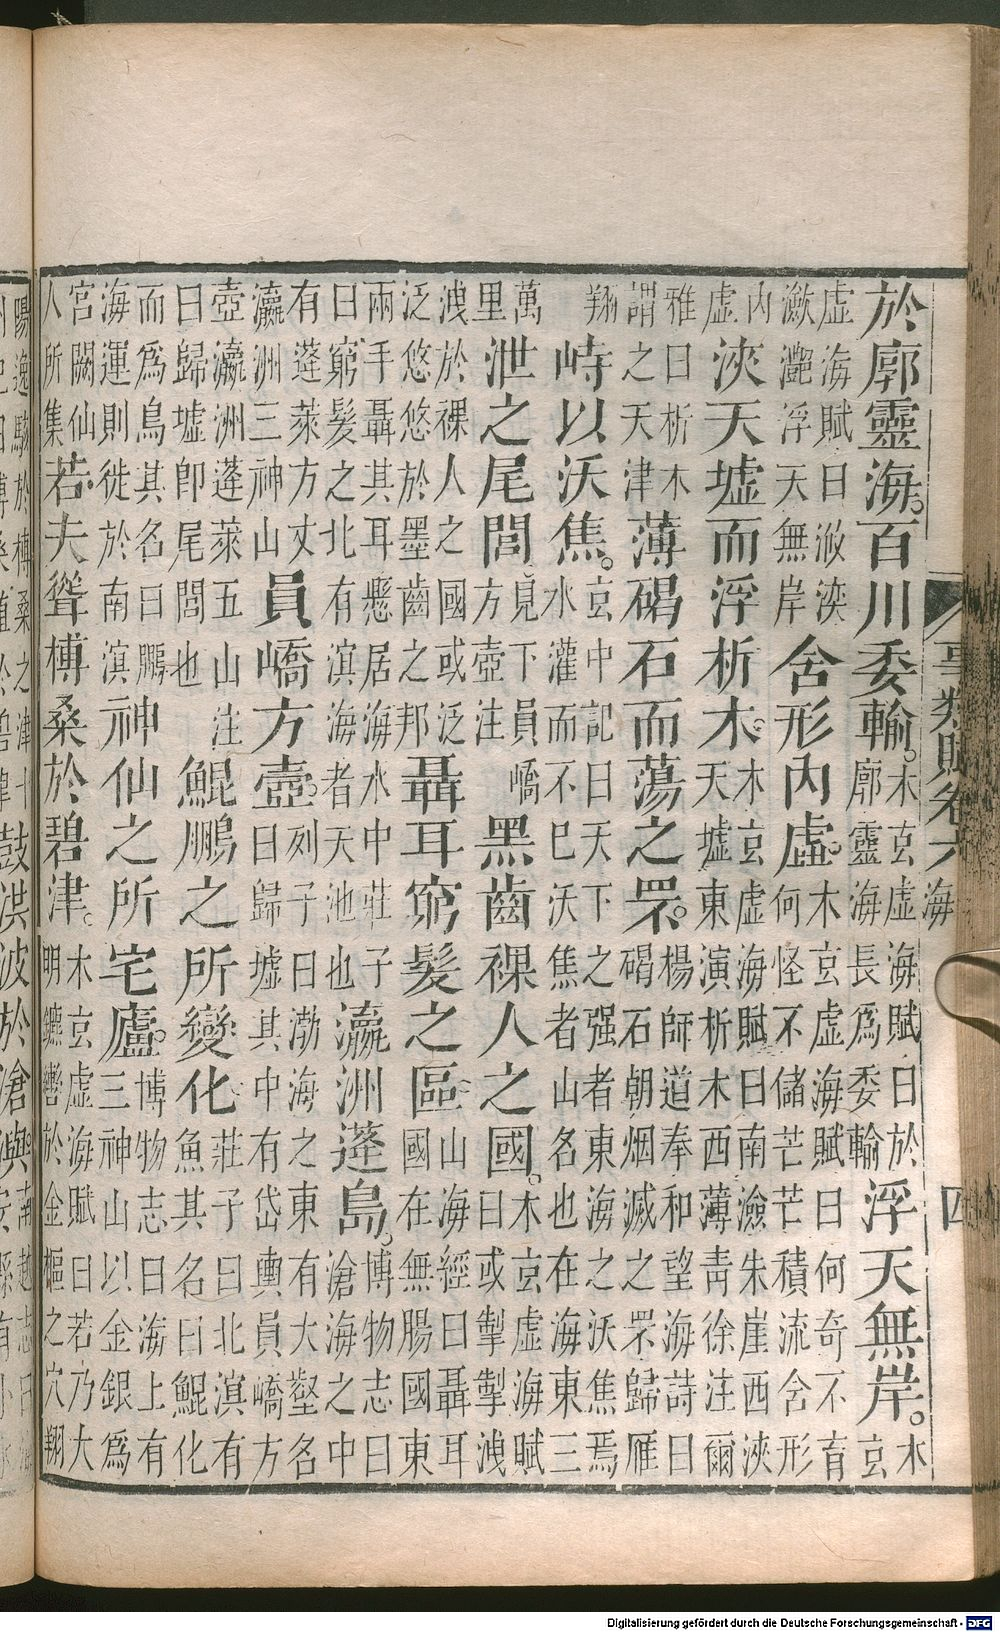 事類賦卷六 海 四
於廓靈海。百川委輸。
木玄虛海賦曰於
廓靈海長爲委輸
浮天無岸。
木
玄
虛海賦曰浟湙
瀲灔浮天無岸
舍形內虛。
木玄虛海賦曰何奇不育
何怪不儲芒芒積流舍形
內
虛
浹天墟而浮析木。
木玄虛海賦曰南澰朱崖西浹
天墟東演析木西薄青徐注爾
雅曰析木
謂之天津
薄碣石而蕩之罘。
楊師道奉和望海詩曰
碣石朝烟滅之罘歸雁
翔
峙以沃焦。
玄中記曰天下之强者東海之沃焦焉
水灌而不已沃焦者山名也在海東三
萬
里
泄之尾閭
見下員嶠
方壺注
黑齒裸人之國。
木玄虛海賦
曰或掣掣洩
洩於裸人之國或泛
泛悠悠於墨齒之邦
聶耳窮髮之區
山海經曰聶耳
國在無腸國東
兩手聶其耳懸居海水中莊子
曰窮髮之北有溟海者天池也
瀛洲蓬島。
博物志曰
滄海之中
有蓬萊方丈
瀛洲三神山
員嶠方壺。
列子曰渤海之東有大壑名
曰歸墟其中有岱輿員嶠方
壺瀛洲蓬萊五山注
曰歸墟卽尾閭也
鯤鵬之所變化。
莊子曰北溟有
魚其名曰鯤化
而爲鳥其名曰鵬
海運則徙於南溟
神仙之所宅廬。
博物志曰海上有
三神山以金銀爲
宮闕仙
人所集
若夫聳榑桑於碧津。
木玄虛海賦曰若乃大
明轡於金樞之穴翔
陽逸駭於榑桑之津十
鼓洪波於滄溟
Digitalisierung gefördert durch die Deutsche Forschungsgemeinschaft - DFG